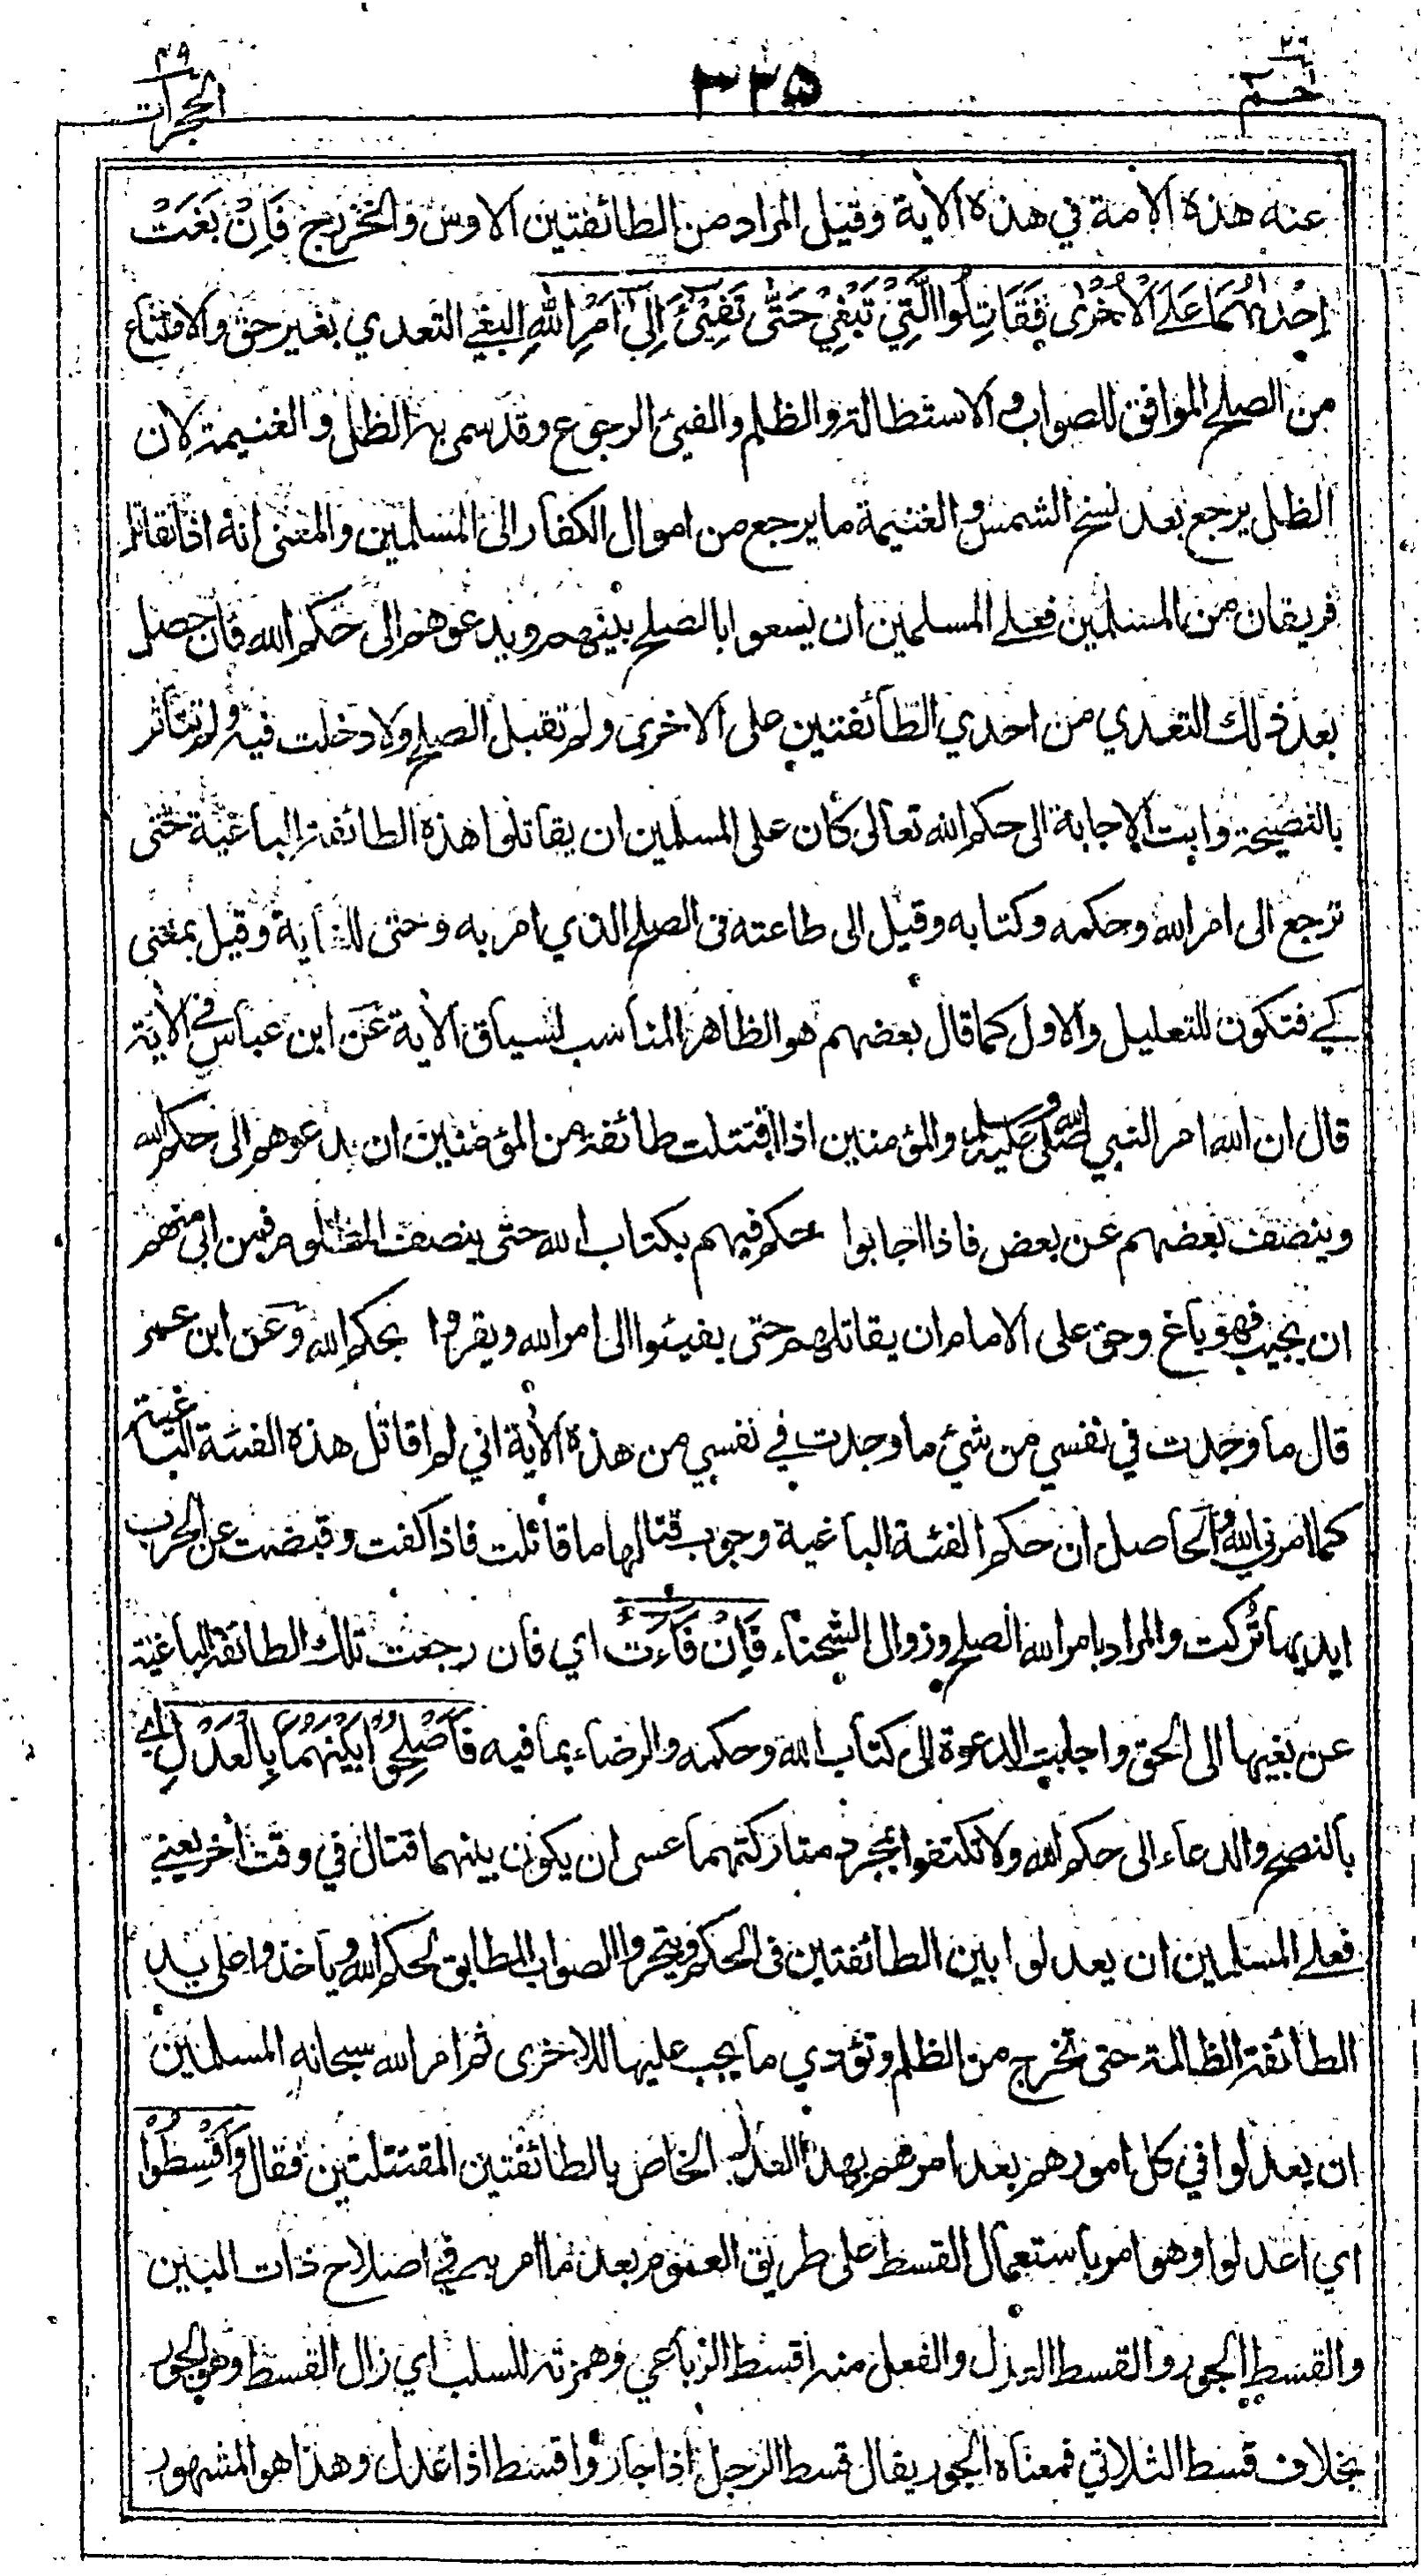 ٢٦
حم
٣٣٥
٤٩
الحجرات
عنه هذه الامة في هذه الأية وقيل المراد من الطائفتين الاوس والخزرج فَاِنْ بَغَتْ
اِحْدٰىهُمَا عَلَى الْاُخْرٰى فَقَاتِلُوا الَّتِيْ تَبْغِيْ حَتّٰى تَفِيْٓءَ اِلٰٓى اَمْرِ اللّٰهِ البغي التعدي بغير حق والامتناع
من الصلح الموافق للصواب والاستطالة والظلم والفيئ الرجوع وقد سمي به الظل والغنيمة لان
الظل يرجع بعد نسخ الشمس والغنيمة ما يرجع من اموال الكفار الى المسلمين والمعنى انه اذا تقاتل
فريقان من المسلمين فعلى المسلمين ان يسعوا بالصلح بينهم ويدعوهم الى حكم الله فان حصل
بعد ذلك التعدي من احدي الطائفتين على الاخرى ولم تقبل الصلح ولا دخلت فيه ولم تتأثر
بالنصيحة وابت الاجابة الى حكم الله تعالى كان على المسلمين ان يقاتلوا هذه الطائفة الباغية حتى
ترجع الى امر الله وحكمه وكتابه وقيل الى طاعته في الصلح الذي امر به وحتى للغاية وقيل بمعنى
كي فتكون للتعليل والاول كما قال بعضهم هو الظاهر المناسب لسياق الأية عن ابن عباس في الأية
قال ان الله امر النبي صلى الله عليه وسلم والمؤمنين اذا اقتتلت طائفة من المؤمنين ان يدعوهم الى حكم الله
وينصف بعضهم عن بعض فاذا اجابوا حكم فيهم بكتاب الله حتى ينصف المظلوم فمن ابى منهم
ان يجيب فهو باغ وحق على الامام ان يقاتلهم حتى يفيئوا الى امر الله ويقروا بحكم الله وعن ابن عمر
قال ما وجدت في نفسي من شيئ ما وجدت في نفسي من هذه الأية اني لم اقاتل هذه الفئة الباغية
كما امرني الله والحاصل ان حكم الفئة الباغية وجوب قتالها ما قاتلت فاذا كفت وقبضت عن الحرب
ايديها تركت والمراد بامر الله الصلح وزوال الشحناء فَاِنْ فَآءَتْ اي فان رجعت تلك الطائفة الباغية
عن بغيها الى الحق واجابت الدعوة الى كتاب الله وحكمه والرضاء بما فيه فَاَصْلِحُوْا بَيْنَهُمَا بِالْعَدْلِ اي
بالنصح والدعاء الى حكم الله ولا تكتفوا بمجرد متاركتهما عسى ان يكون بينهما قتال في وقت أخر يعني
فعلى المسلمين ان يعدلوا بين الطائفتين في الحكم ويتحروا الصواب المطابق لحكم الله وياخذوا على يد
الطائفة الظالمة حتى تخرج من الظلم وتؤدي ما يجب عليها للاخرى ثم امر الله سبحانه المسلمين
ان يعدلوا في كل امورهم بعد امرهم بهذا العدل الخاص بالطائفتين المقتتلتين فقال وَاَقْسِطُوْا
اي اعدلوا وهو امر باستعمال القسط على طريق العموم بعد ما امر به في اصلاح ذات البين
والقسط الجور والقسط العدل والفعل منه اقسط الرباعي وهمزته للسلب اي زال القسط وهو الجور
بخلاف قسط الثلاثي فمعناه الجور يقال قسط الرجل اذا جار واقسط اذا عدل وهذا هو المشهور